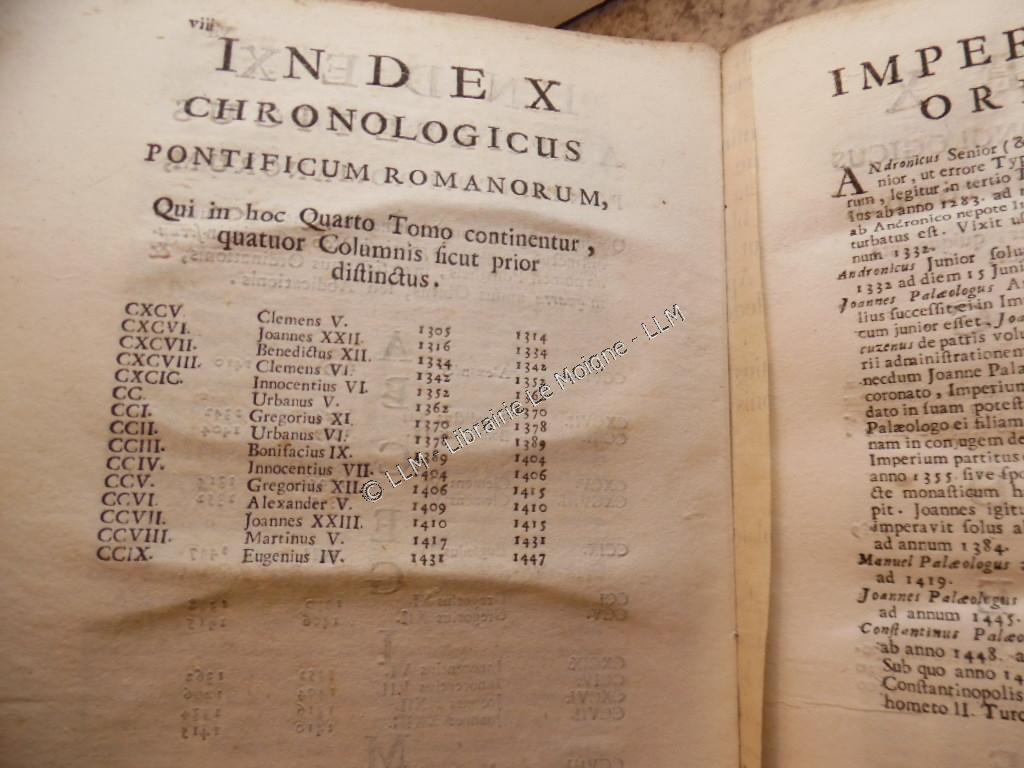 viij
INDEX
CHRONOLOGICUS
PONTIFICUM ROMANORUM,
Qui in hoc Quarto Tomo continentur,
quatuor Columnis sicut prior
distinctus.
CXCV. Clemens V. 1305 1314
CXCVI. Joannes XXII. 1316 1334
CXCVII. Benedictus XII. 1334 1342
CXCVIII. Clemens VI. 1342 1352
CXCIC. Innocentius VI. 1352
CC. Urbanus V. 1362 1370
CCI. Gregorius XI. 1370 1378
CCII. Urbanus VI. 1389
CCIII. Bonifacius IX. 1389 1404
CCIV. Innocentius VII. 1404 1406
CCV. Gregorius XII. 1406 1415
CCVI. Alexander V. 1409 1410
CCVII. Joannes XXIII. 1410 1415
CCVIII. Martinus V. 1417 1431
CCIX. Eugenius IV. 1431 1447
© LLM - Librairie Le Moigne - LLM
IMPER
ORI
ANdronicus Senior (
nior, ut errore Typ
rum, legitur in tertio T
lus ab anno 1283. ad
ab Andronico nepote I
turbatus est. Vixit
num 1332.
Andronicus Junior
1332 ad diem 15 Juni
Joannes Palæologus
lius successit ei in Im
cum junior esset. Joa
cuzenus de patris volu
rii administrationem
necdum Joanne Pala
coronato, Imperium
dato in suam potest
Palæologo ei filiam
nam in conjugem de
Imperium partitus
anno 1355. sive spo
cte monasticum h
pit. Joannes igitu
imperavit solus a
ad annum 1384.
Manuel Palæologus
ad 1419.
Joannes Palæologus
ad annum 1445.
Constantinus Palæo
ab anno 1448. a
Sub quo anno 14
Constantinopolis
hometo II. Turc